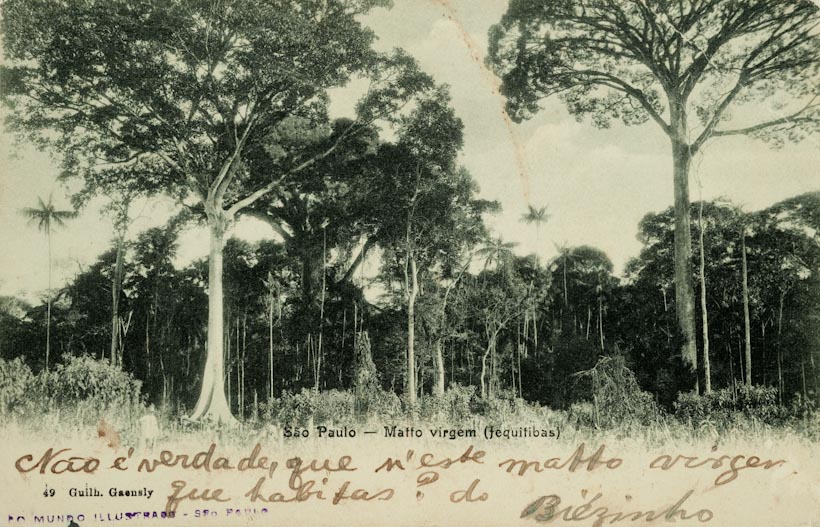 São Paulo — Matto virgem (Jequitibas)
Não é verdade, que n'este matto virgem
49 Guilh. Gaensly
que habitas? do Biézinho
AO MUNDO ILLUSTRADO - SÃO PAULO